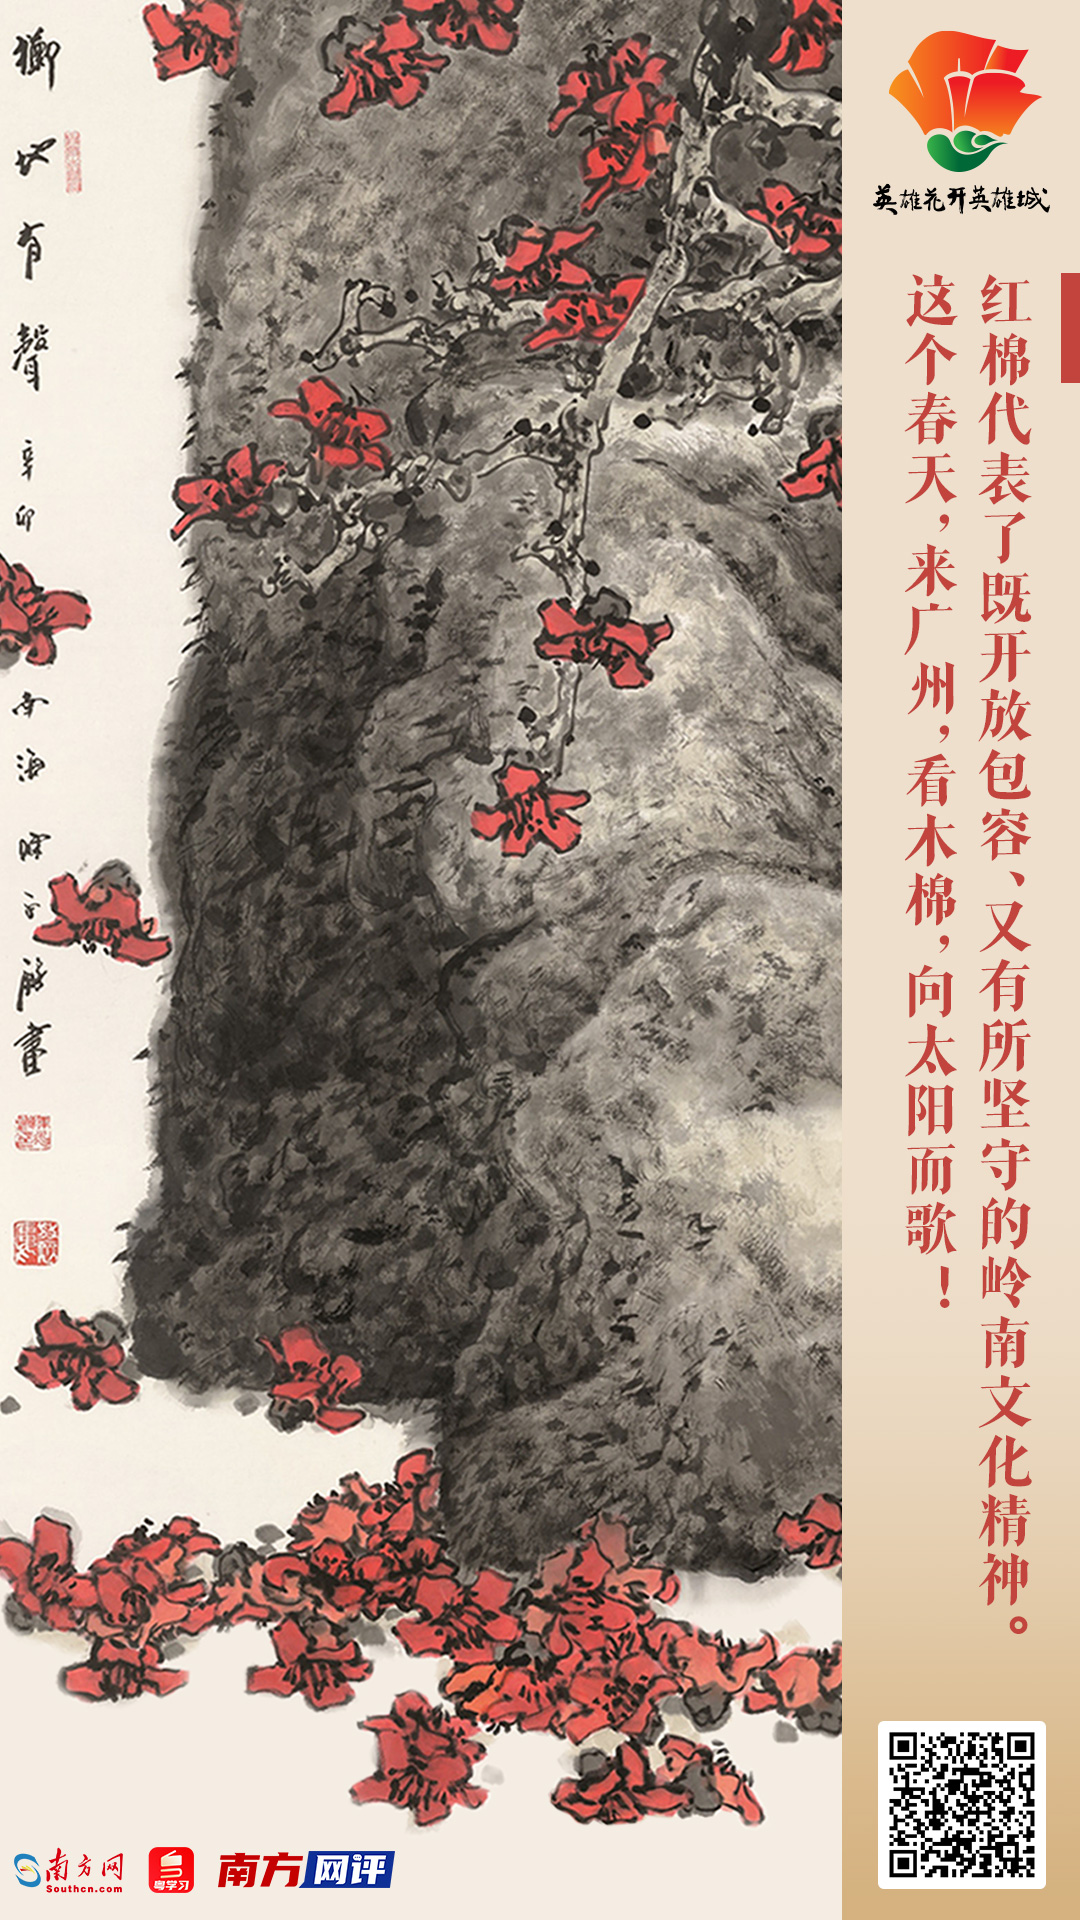 英雄花开英雄城
红棉代表了既开放包容、又有所坚守的岭南文化精神。
这个春天，来广州，看木棉，向太阳而歌！
掷地有聲 辛卯
南海
畫
南方网
Southcn.com
粤学习
南方网评